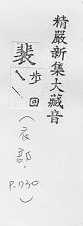 精嚴新集大藏音
裴步回
(衣部. P.730)